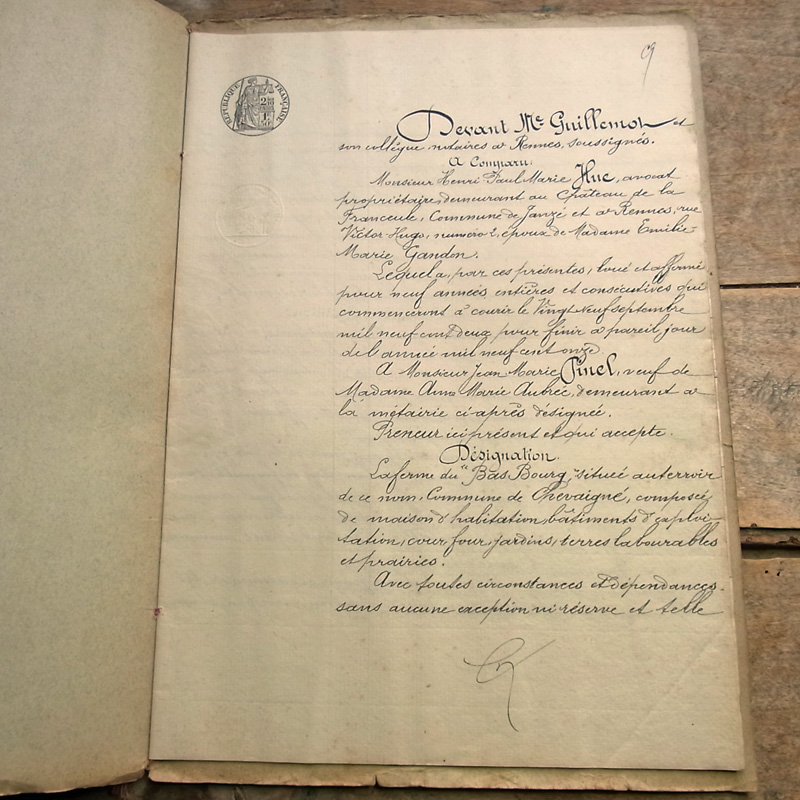 RÉPUBLIQUE FRANÇAISE
Devant Me Guillemot et
son collègue, notaires à Rennes, soussignés.
A Comparu:
Monsieur Henri Paul Marie Huc, avocat
propriétaire, demeurant au Château de la
Franceule, Commune de Janzé et à Rennes, rue
Victor-Hugo, numéro 2, époux de Madame Emilie-
Marie Gandon.
Lequel a, par ces présentes, loué et affermé
pour neuf années entières et consécutives qui
commenceront à courir le Vingt Neuf septembre
mil neuf cent deux pour finir à pareil jour
de l'année mil neuf cent onze
A Monsieur Jean Marie Pinel, veuf de
Madame Anne Marie Aubrée, demeurant à
la métairie ci-après désignée.
Preneur ici présent et qui accepte.
Désignation.
La ferme du "Bas Bourg", située au terroir
de ce nom, Commune de Chevaigné, composée
de maison d'habitation, bâtiments d'exploi-
tation, cour, four, jardins, terres labourables
et prairies.
Avec toutes circonstances et dépendances,
sans aucune exception ni réserve et telle